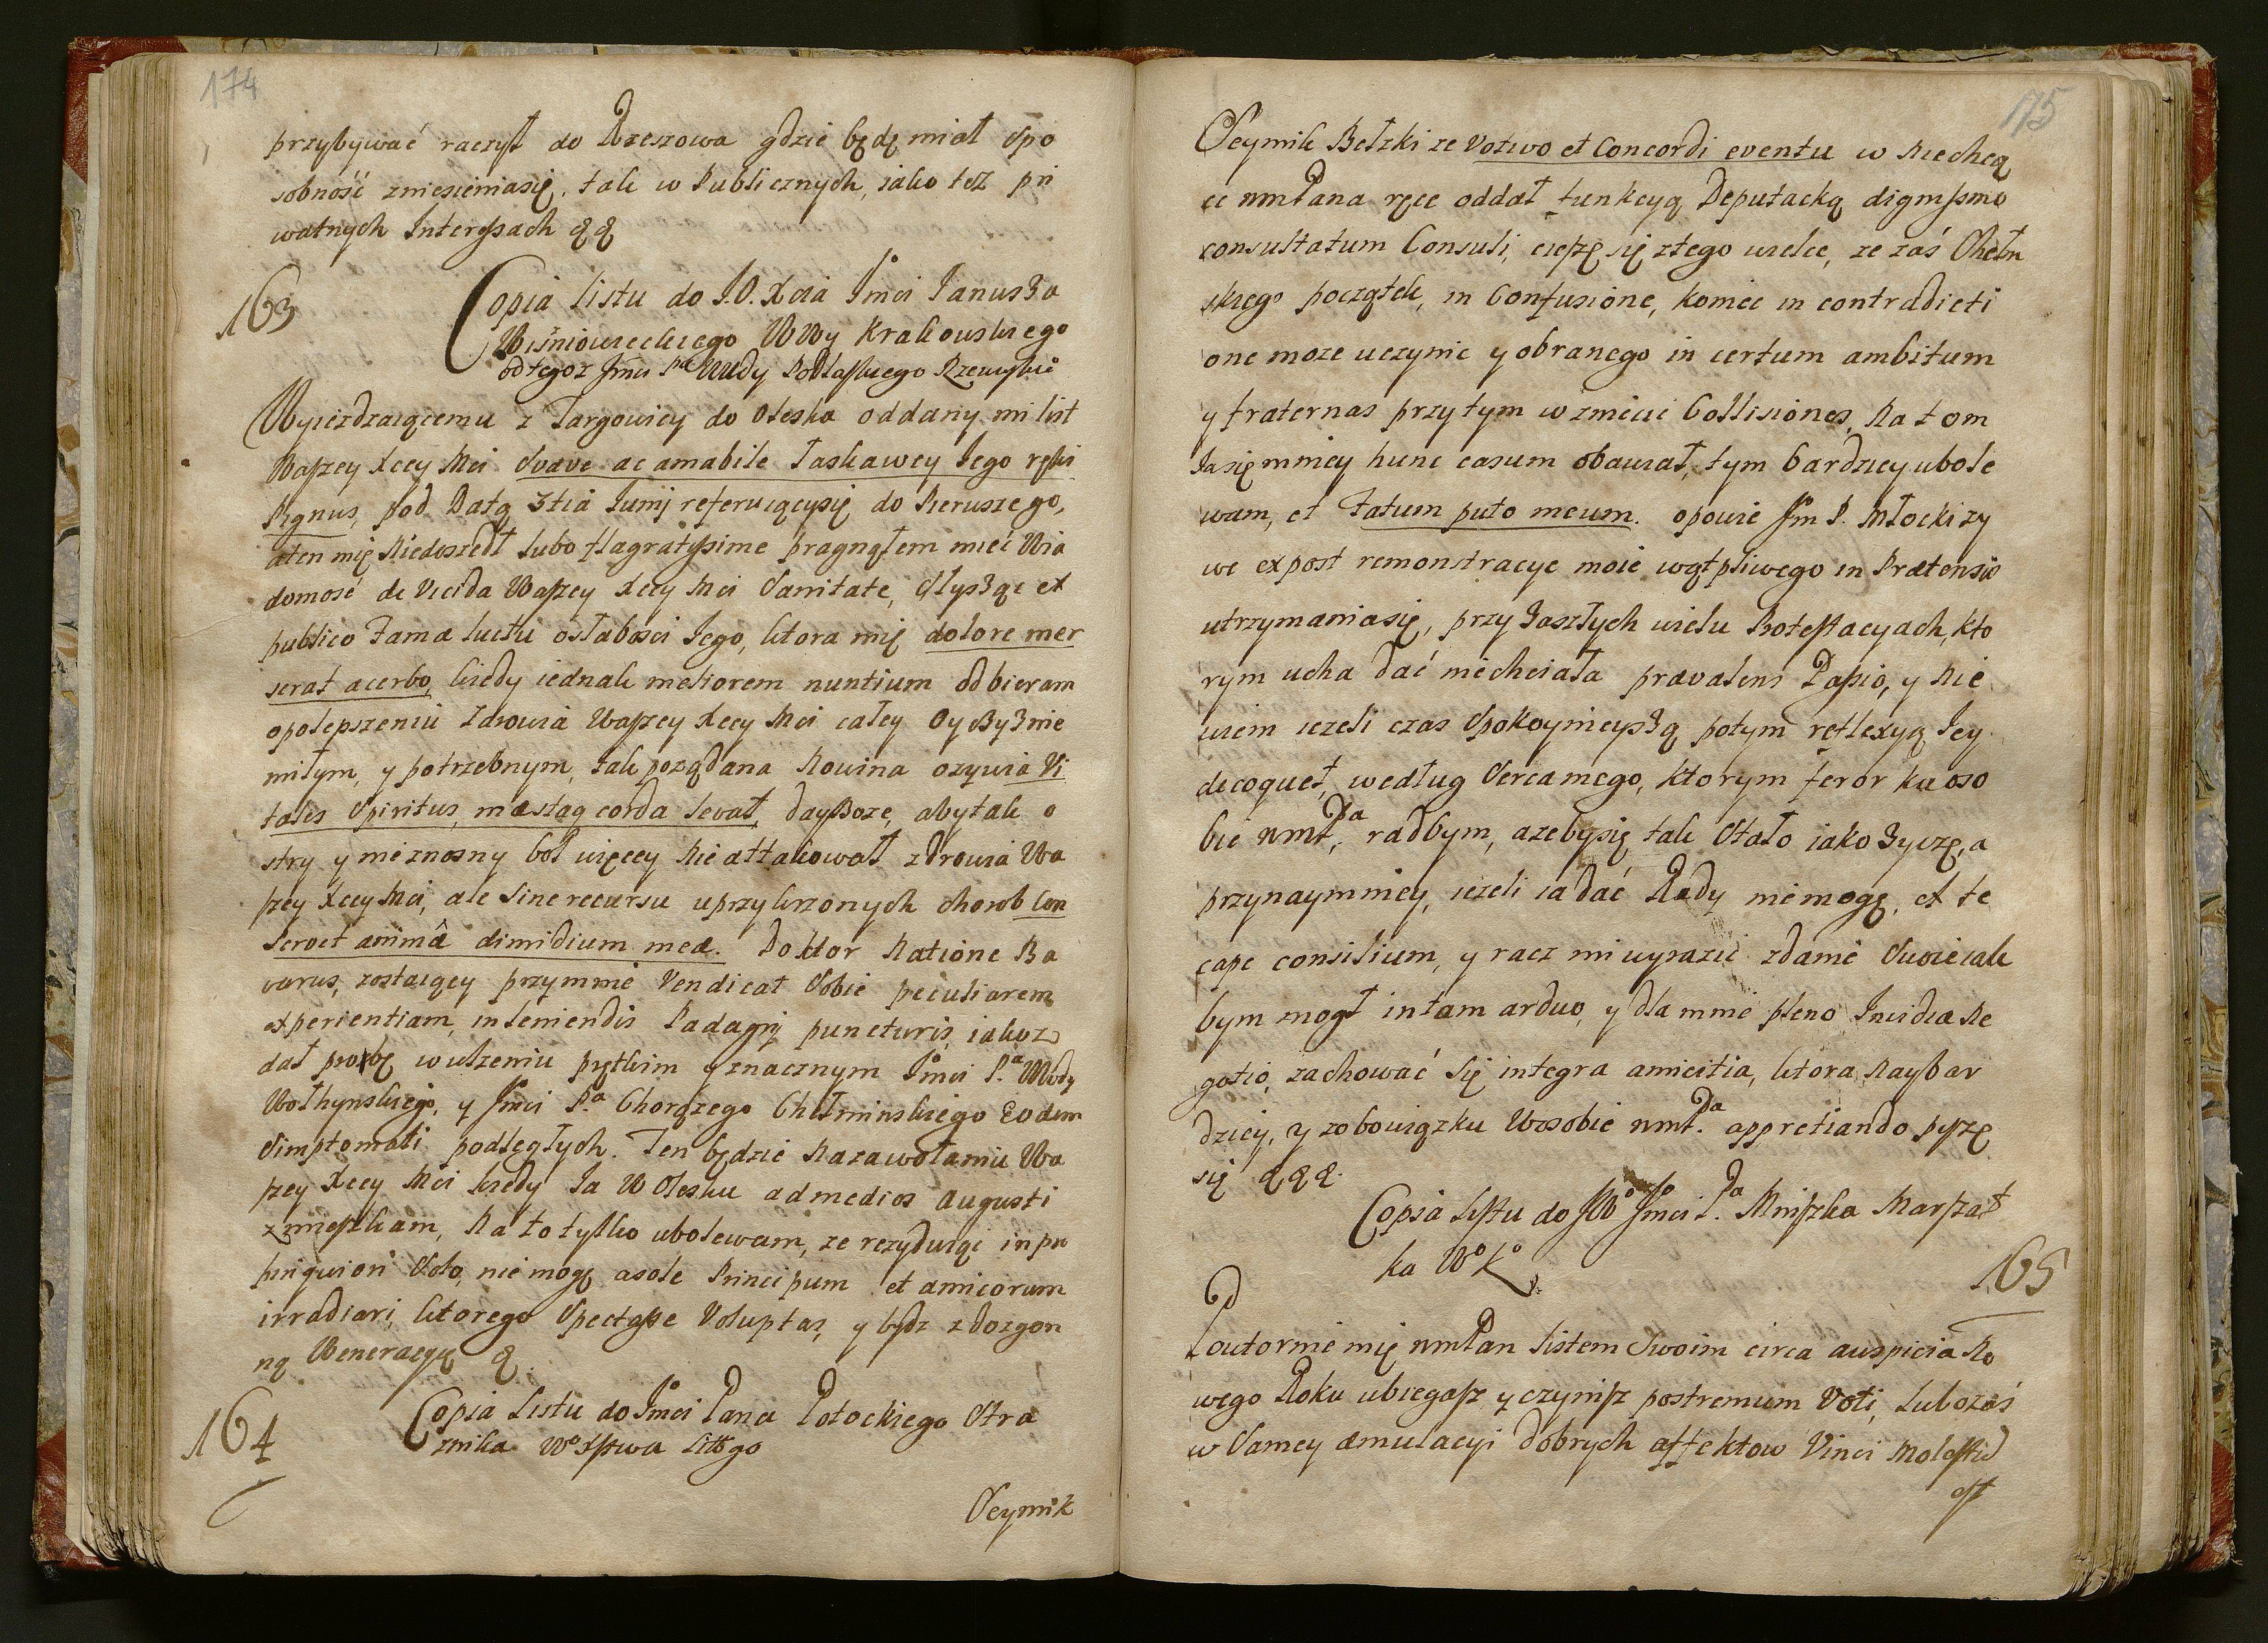 174
przybywać raczył do Rzeszowa gdzie będę miał spo
sobność zniesieniasię, tak w Publicznych, iako też pri
watnych Interessach &&
163
Copia listu do J.O. Xcia Jmci Janusza
Wiśniowieckiego WWdy Krakowskiego
od tegoż Jmci Pa WWdy Podlaskiego Rzewuskie
Wyieżdzaiącemu z Targowicy do Oleska oddany mi list
Waszey Xcey Mci Svave ac amabile łaskawey Jego ręki
Pignus, pod Datą 3tia Junij referuiącysię do Pierwszego,
aten mię Niedoszedł lubo flagratissime pragnąłem mieć Wia
domość de Vicida Waszey Xcey Mci Sanitate, słysząc ex
publico Fama luctu osłabosci Jego, ktora mię dolore mer
serat acerbo, kiedy iednak meliorem nuntium odbieram
opolepszeniu Zdrowia Waszey Xcey Mci całey Oyczyznie
miłym, y potrzebnym, tak pożądana Nowina ożywia Vi
tales Spiritus, mæstaq corda levat, day Boże, aby tak o
stry y nieznosny bol więcey nie attakował zdrowia Wa
szey Xcey Mci, ale Sine recursu uprzykrzonych chorob Con
servet animâ dimidium meæ. Doktor Natione Ba
varus, zostaiący przymnie Vendicat Sobie peculiarem
experientiam, inleniendis Padagrij puncturis, iakoż
dał probę wulżeniu prętkim y znacznym Jmci P.a WWdy
Wołhynskiego, y Jmci P.a Chorążego Chełminskiego Eodem
Simptomati podległych. Ten będzie Nazawołaniu Wa
szey Xcey Mci kiedy Ja W Olesku admedios Augusti
zmieszkam, Na to tylko ubolewam, ze rezyduiąc inpin
pinguiori Solo, nie mogę asole Principum et amicorum
irradiari, ktorego Spectasse Voluptas, y bydz zdozgon
ną Weneracyą &.
164
Copia Listu do Jmci Pana Potockiego Stra
znika Wo Xstwa Littgo
Seymik
175
Seymik Bełzki ze Votivo et Concordi eventu w Niechcą
ce WmPana ręce oddał funkcyą Deputacką dignissmo
consultatum Consuli, cieszę się ztego wielce, ze zaś Chełm
skiego początek, in Confusione, koniec in contradicti
one moze uczynic y obranego in certum ambitum
y fraternas przytym wzniecic Collisiones, Na tom
Ja się mniey hunc casum obawiał, tym bardziey ubole
wam, et Fatum puto meum. opowie Jm P. Młocki zy
we expost remonstracye moie wątpliwego in Prætensio
utrzymaniasię, przy Zaszłych wielu Protestacyach, kto
rym ucha dać niechciała prævalens Passio, y Nie
wiem iezeli czas Spokoynieyszą potym reflexyą Jey
decoquet, według Sercamego, ktorym feror ku oso
bie WmP.a radbym, azebysię tak Stało iako Zyczę, a
przynaymniey, iezeli ia dać Rady niemogę, ex te
cape consilium, y racz mi wyrazić zdanie Swoie iak
bym mogł intam arduo, y dla mnie pleno Invidiæ Ne
gotio, zachować Się integra amicitia, ktora Naybar
dziey, y zobowiązku Wosobie WmP.a appretiando piszę
się &&&.
Copia Listu do JWo Jmci P.a Mniszka Marszał
ka Wo Ko
165
Powtornie mię WmPan listem Swoim circa auspicia No
wego Roku ubiegasz y czynisz postremum Voti, Lubozaś
w Samey æmulacyi dobrych affektow Vinci Molestu
est